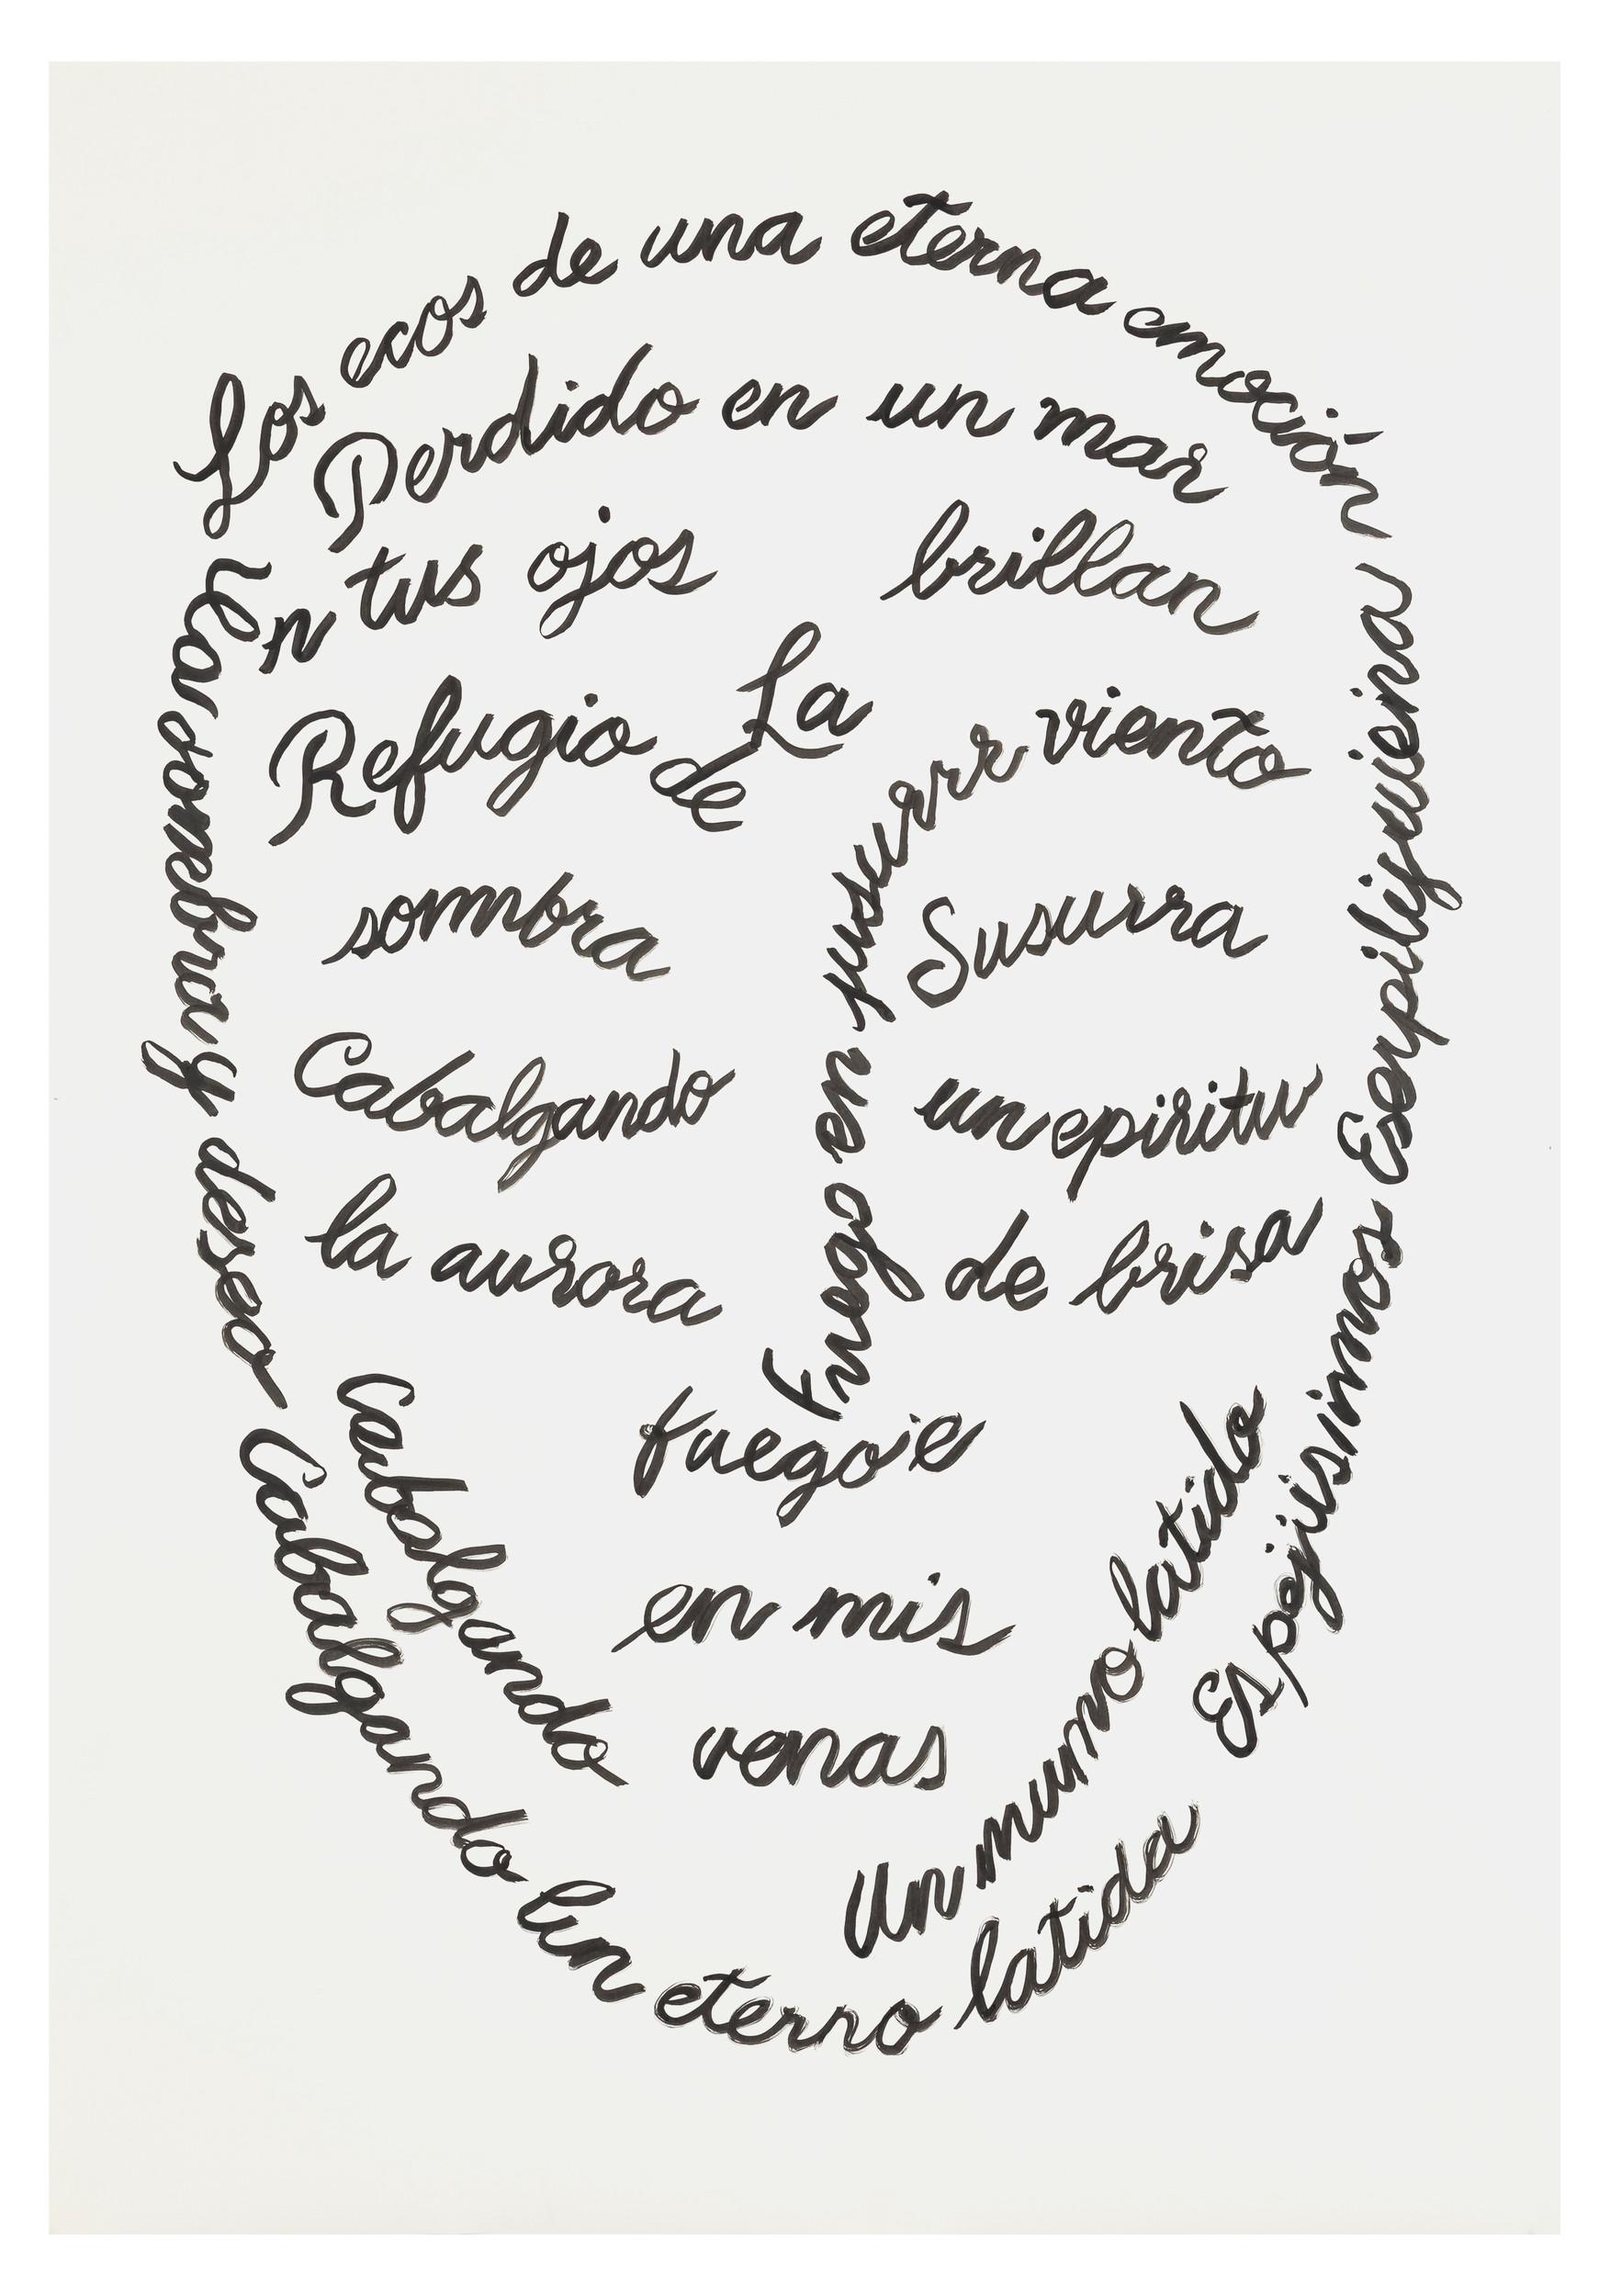 Los ecos de una eterna emoción
Perdido en un mar
tus ojos brillan
La
Refugio de viento
sombra Susurra
Cabalgando un epiritu
la aurora de brisa
Fuego en
fuego e
en mis
venas
sombra y deseo
Cabalgando
Cabalgando un eterno latida
Un latido
Espejisimos